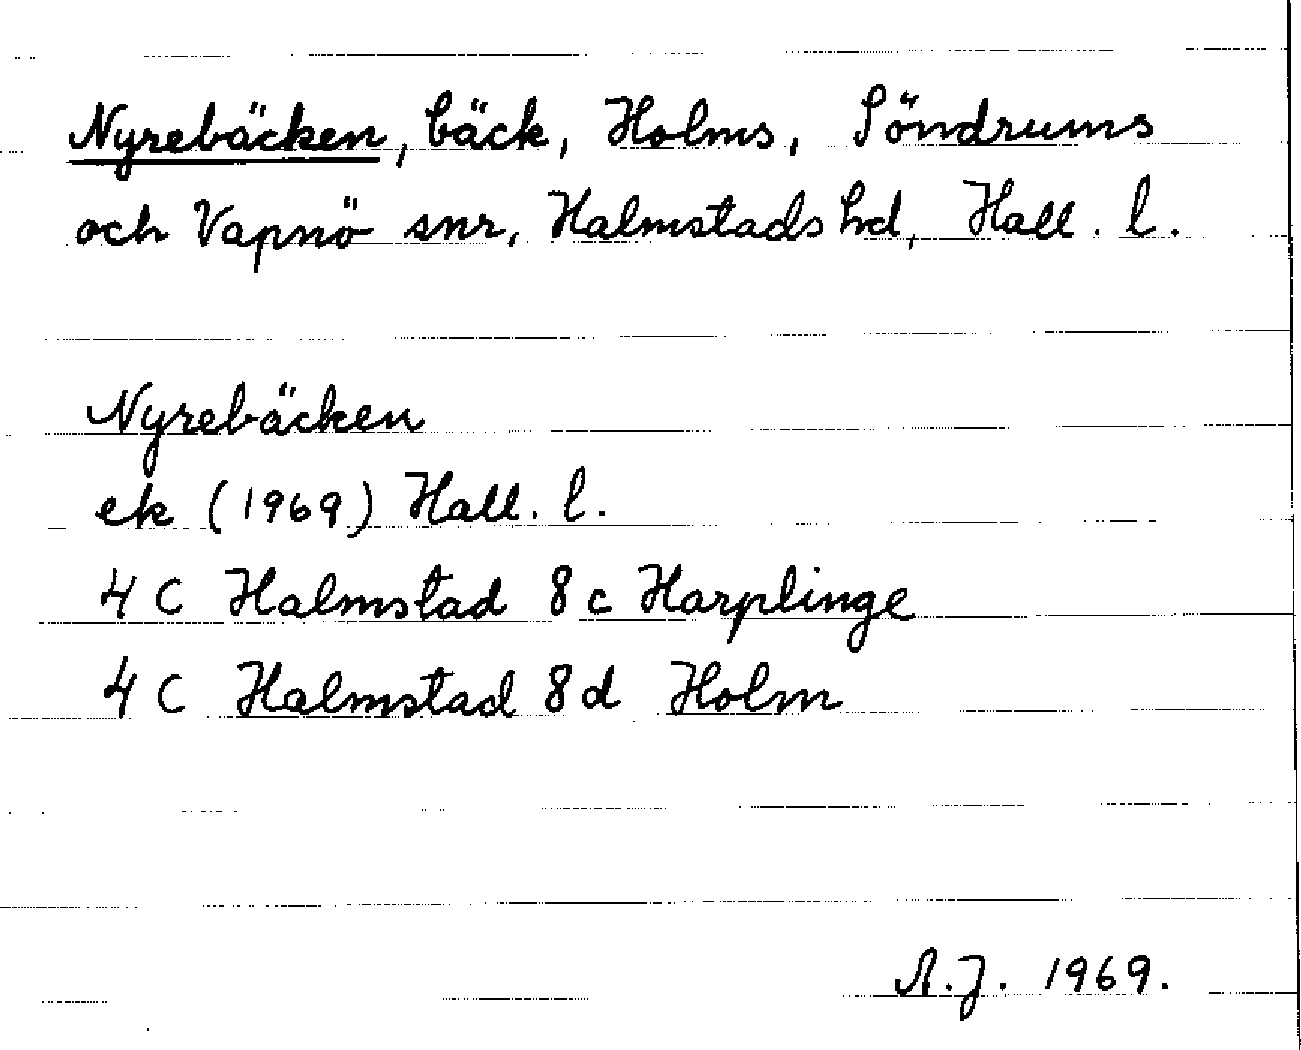 Nyrebäcken, bäck, Holms, Söndrums
och Vapnö snr, Halmstads hd, Hall. l.
Nyrebäcken
ek (1969) Hall. l.
4 C Halmstad 8 c Harplinge
4 C Halmstad 8 d Holm
A.J. 1969.